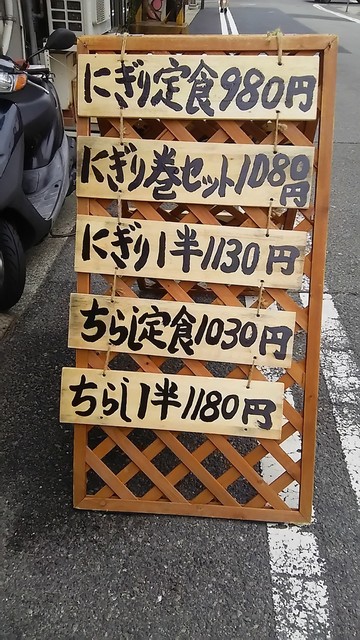 にぎり定食980円
にぎり巻セット1080円
にぎり1半1130円
ちらし定食1030円
ちらし1半1180円